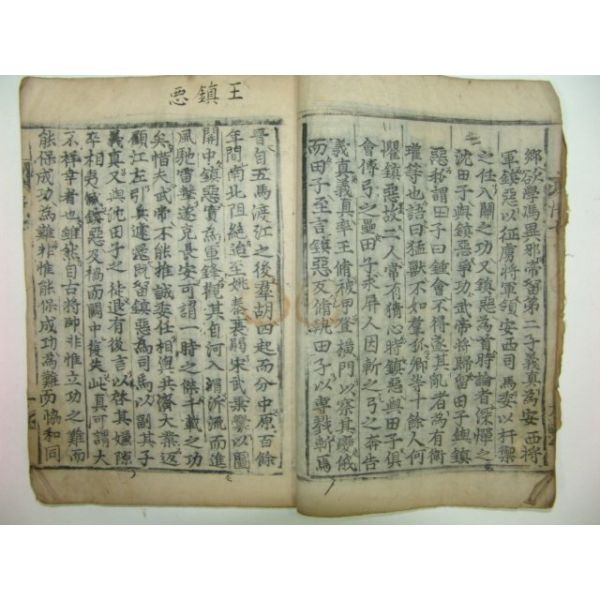 卿欲學馮異邪帝留第二子義真為安西將
軍鎮惡以征虜將軍領安西司馬委以扞禦
之任入關之功又鎮惡為首時論者深憚之
沈田子與鎮惡爭功武帝將歸留田子與鎮
惡私謂田子曰鍾會不得遂其亂者為有衛
瓘等也語曰猛獸不如羣狐卿等十餘人何
懼鎮惡故二人常有猜心時鎮惡與田子俱
會傅弘之壘田子求屏人因斬之弘之奔告
義真義真率王脩被甲登橫門以察其變俄
而田子至言鎮惡反脩執田子以專戮斬焉
王鎮悪
晉自五馬渡江之後羣胡四起而分中原百餘
年間南北阻絕迨至姚秦衰弱宋武乘釁以圖
關中鎮惡實為軍鋒觀其自河入渭泝流而進
風馳電擊遂克長安可謂一時之傑千載之功
矣惜夫武帝不能推誠委任相與共濟大業返
顧江左引兵遽還既留鎮惡為司馬以副其子
義真又與沈田子之徒退有後言以啓其嫌隙
卒相夷滅鎮惡及禍而關中復失此真可謂大
不祥幸者也雖然自古將帥非惟立功之難而
能保成功為難非惟能保成功為難而恊和同